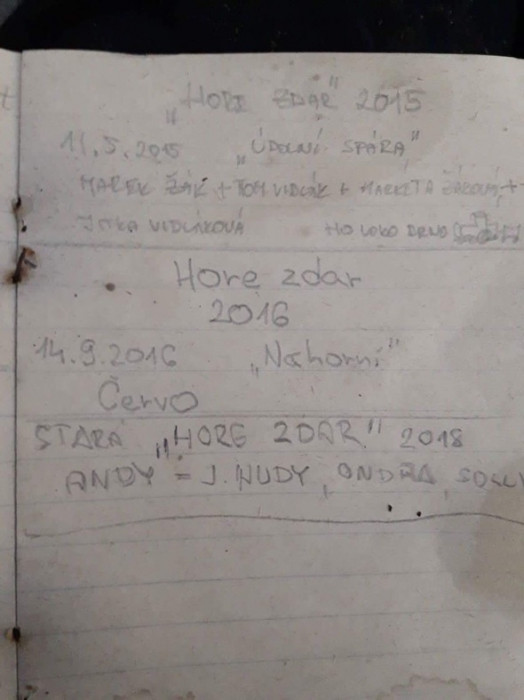 „HORE ZDAR" 2015
11.5.2015 „ÚDOLNÍ SPÁRA"
MAREK ŽÁK + TOM VIDLÁK + MARKÉTA ŽÁKOVÁ +
JITKA VIDLÁKOVÁ HO LOKO DRNO
Hore zdar
2016
14.9.2016 „Nahorní"
Červo
STARÁ „HORE ZDAR" 2018
ANDY = J. HUDY, ONDRA,